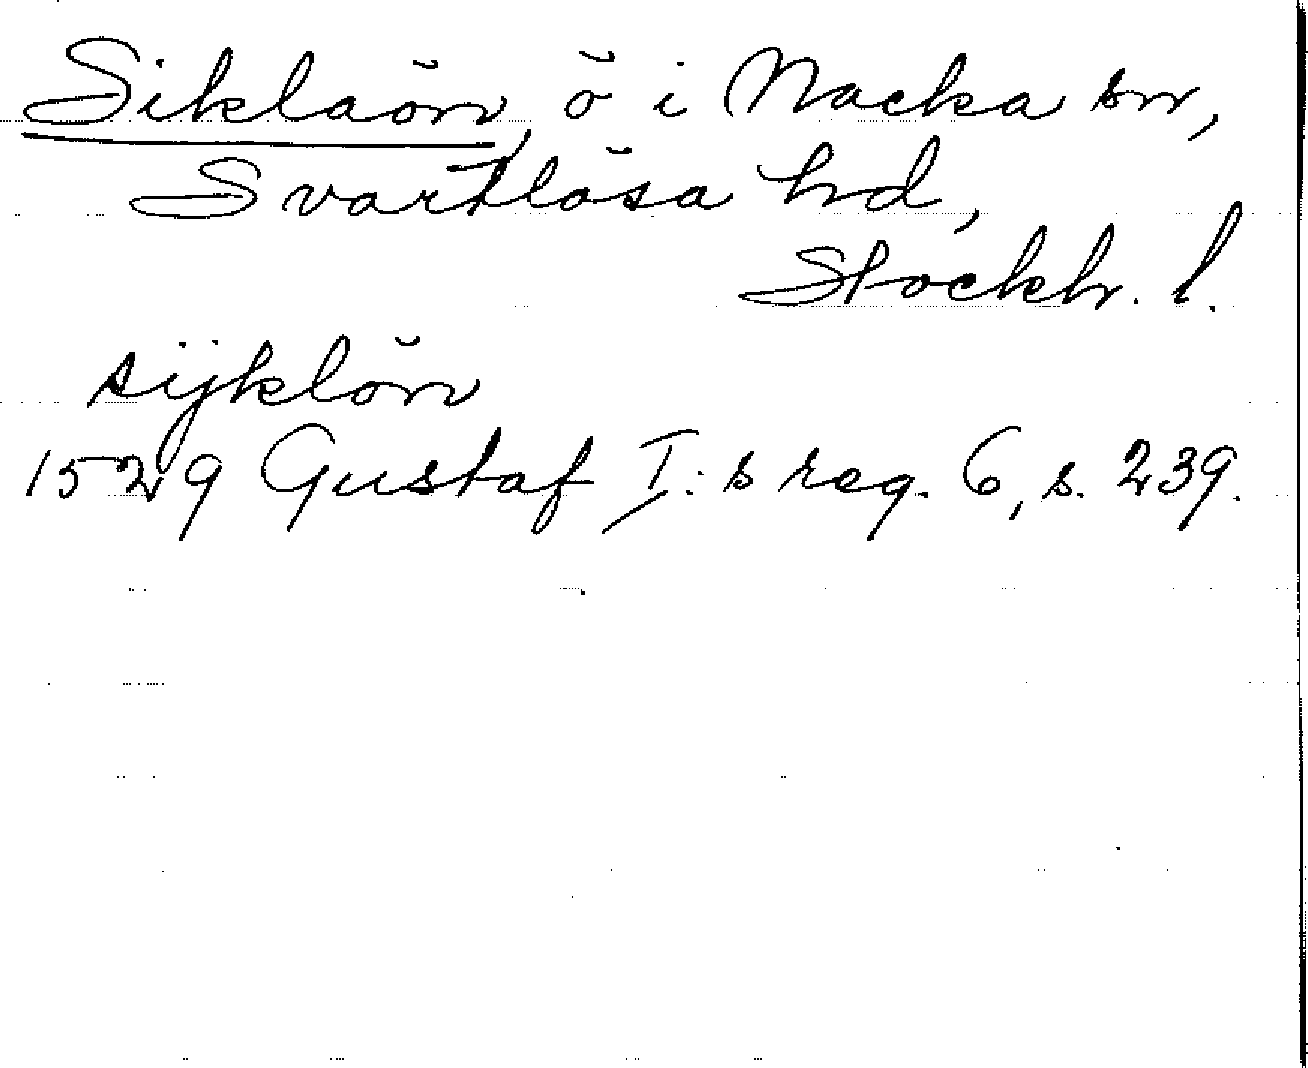 Siklaön, ö i Nacka sn,
Svartlösa hd,
Stockh. l.
sijklön
1529 Gustaf I:s reg. 6, s. 239.